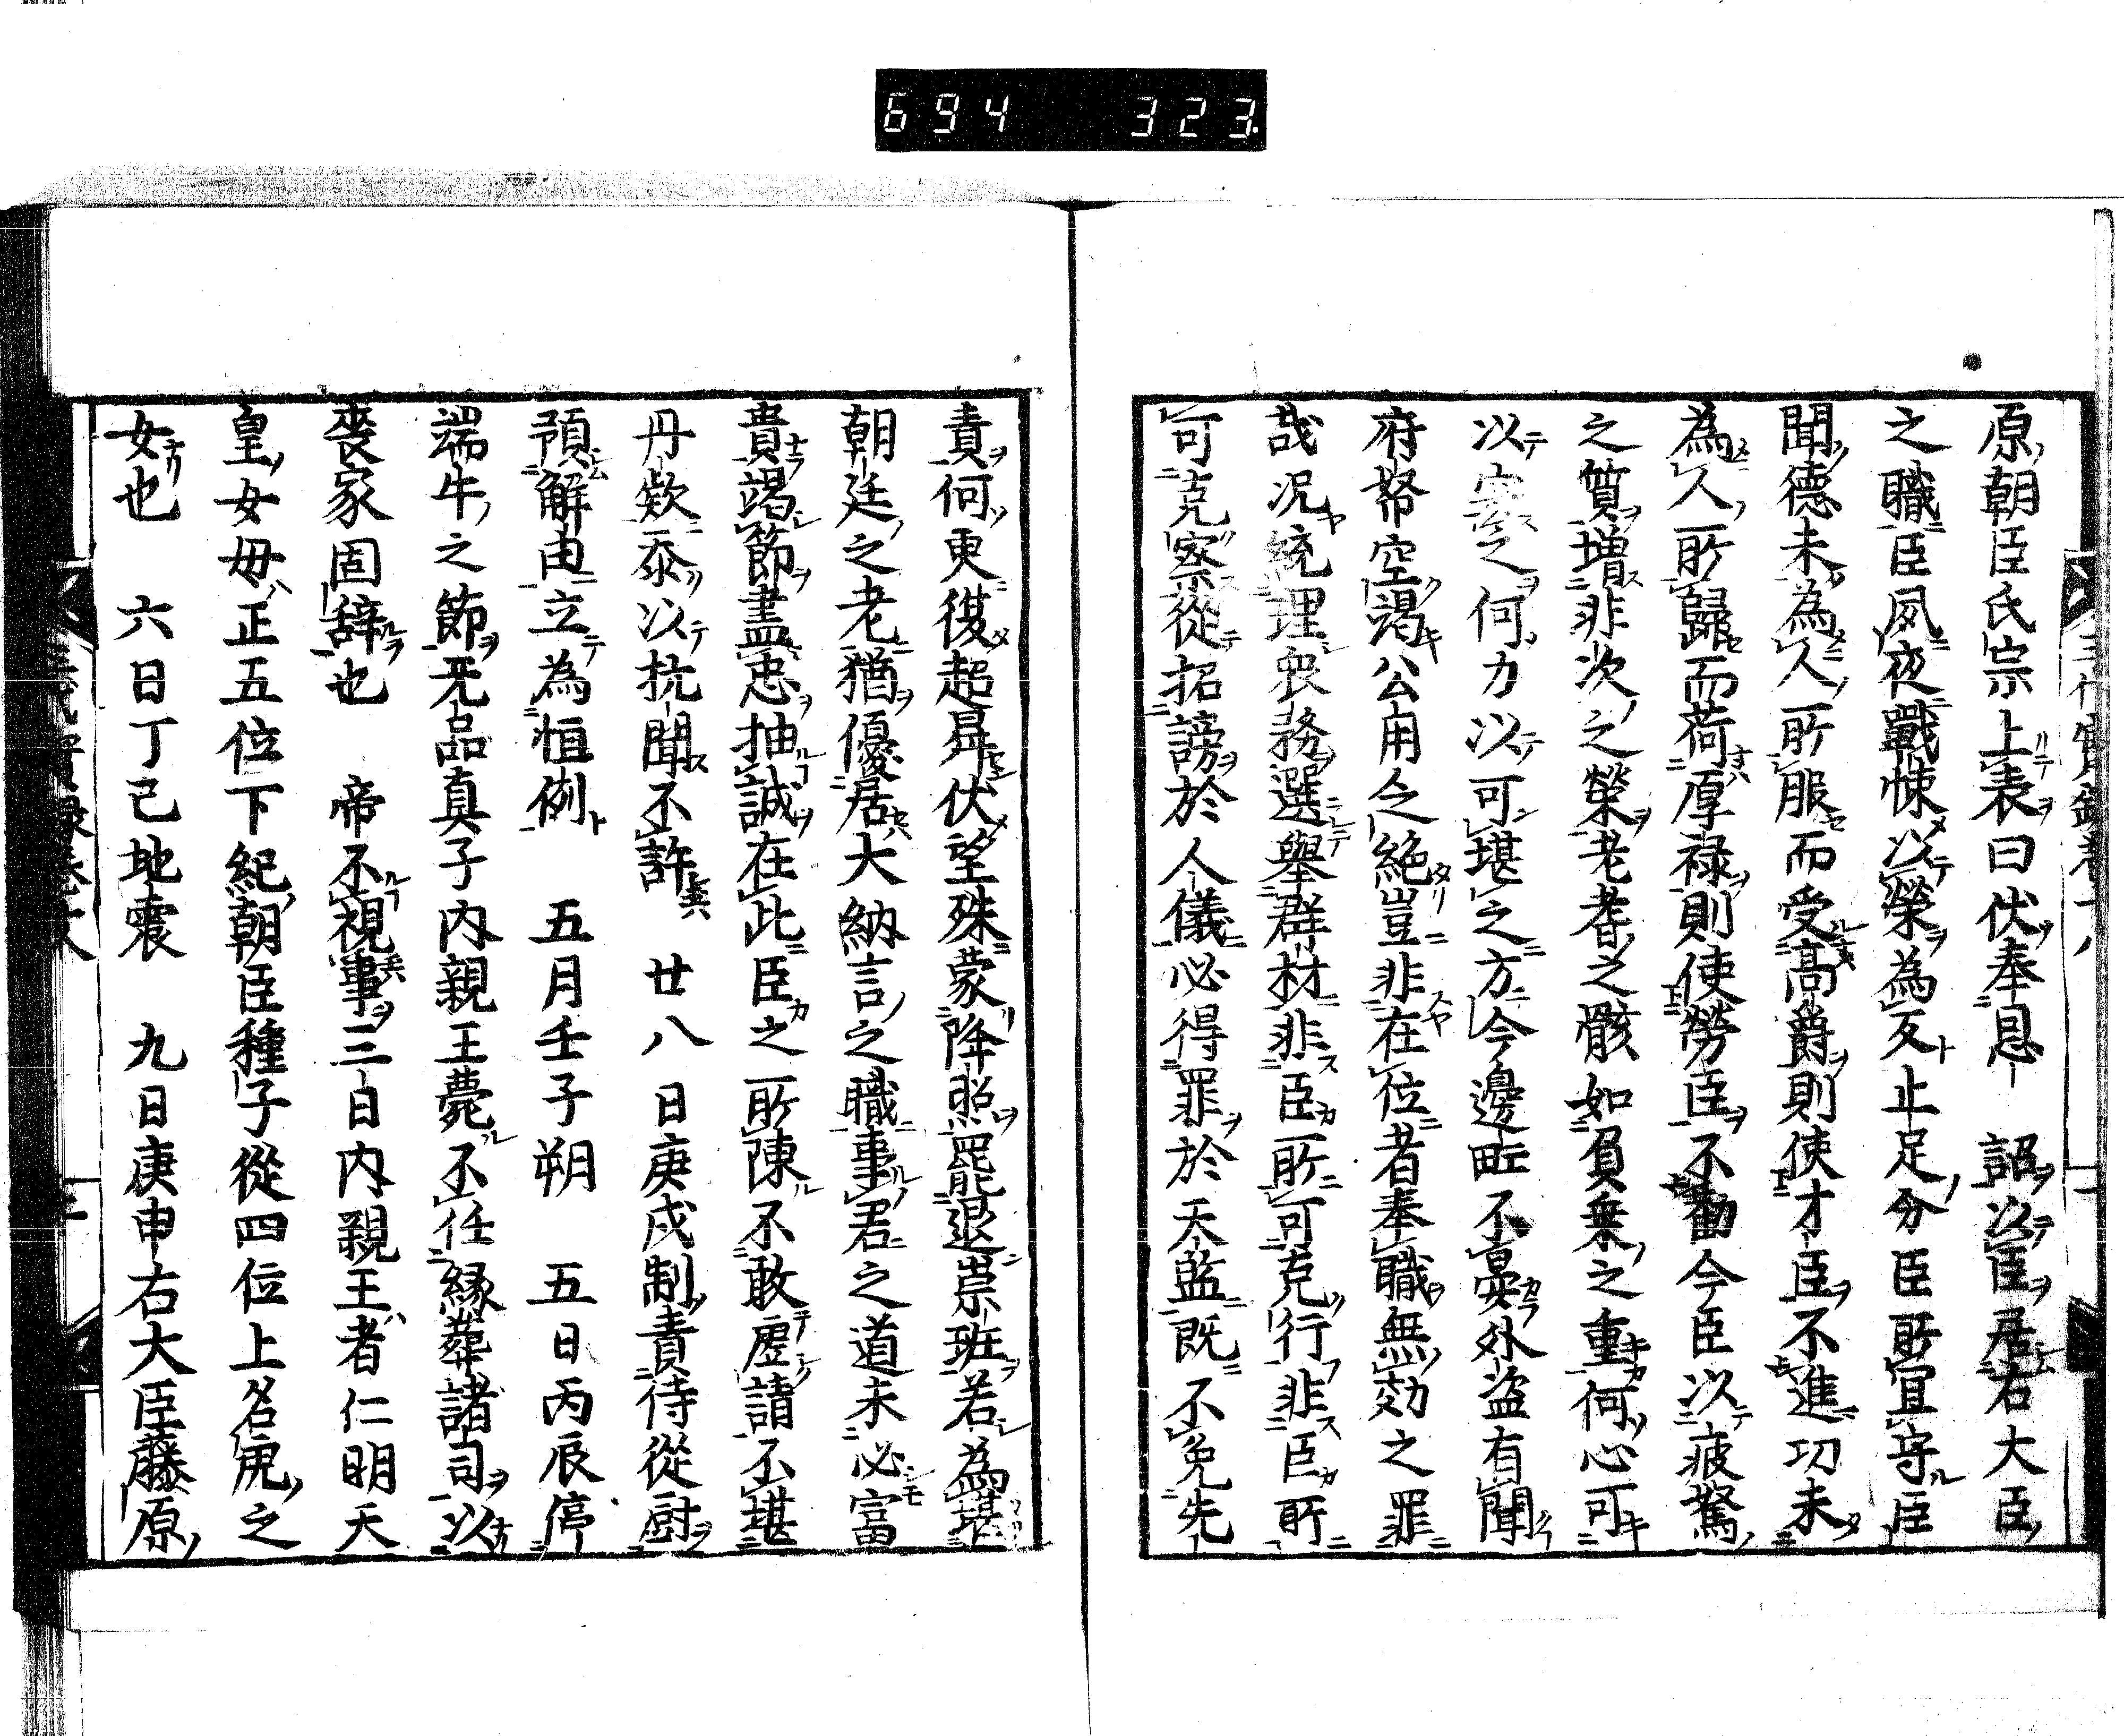 694 323
原朝臣氏宗上表曰伏奉恩 詔以臣居右大臣
之職臣夙夜戰悚以榮為灾止足分臣所宜守臣
聞德未為人所服而受高爵則使才臣不進功未
為人所歸而荷厚禄則使勞臣不勸今臣以疲駑
之質增非次之榮老耄之骸如負乗之重何心可
以寒之何力以可堪之方今邊垂不晏外盗有聞
府帑空渇公用今絶豈非在位者奉職無効之罪
哉况統理衆務選舉群材非臣所可克行非臣所
可克察從招謗於人儀必得罪於天監既不免先
責何更復超昇伏望殊蒙降照罷退崇班若為堪
朝廷之老猶優居大納言之職事君之道未必富
貴竭節盡忠抽誠在此臣之所陳不敢虚請不堪
丹欵忝以抗聞不許 廿八日庚戌制責侍從厨
預解由立為恒例 五月壬子朔 五日丙辰停
端午之節无品真子内親王薨不任縁葬諸司以
喪家固辞也 帝不視事三日内親王者仁明天
皇女母正五位下紀朝臣種子從四位上名虎之
女也 六日丁巳地震 九日庚申右大臣藤原